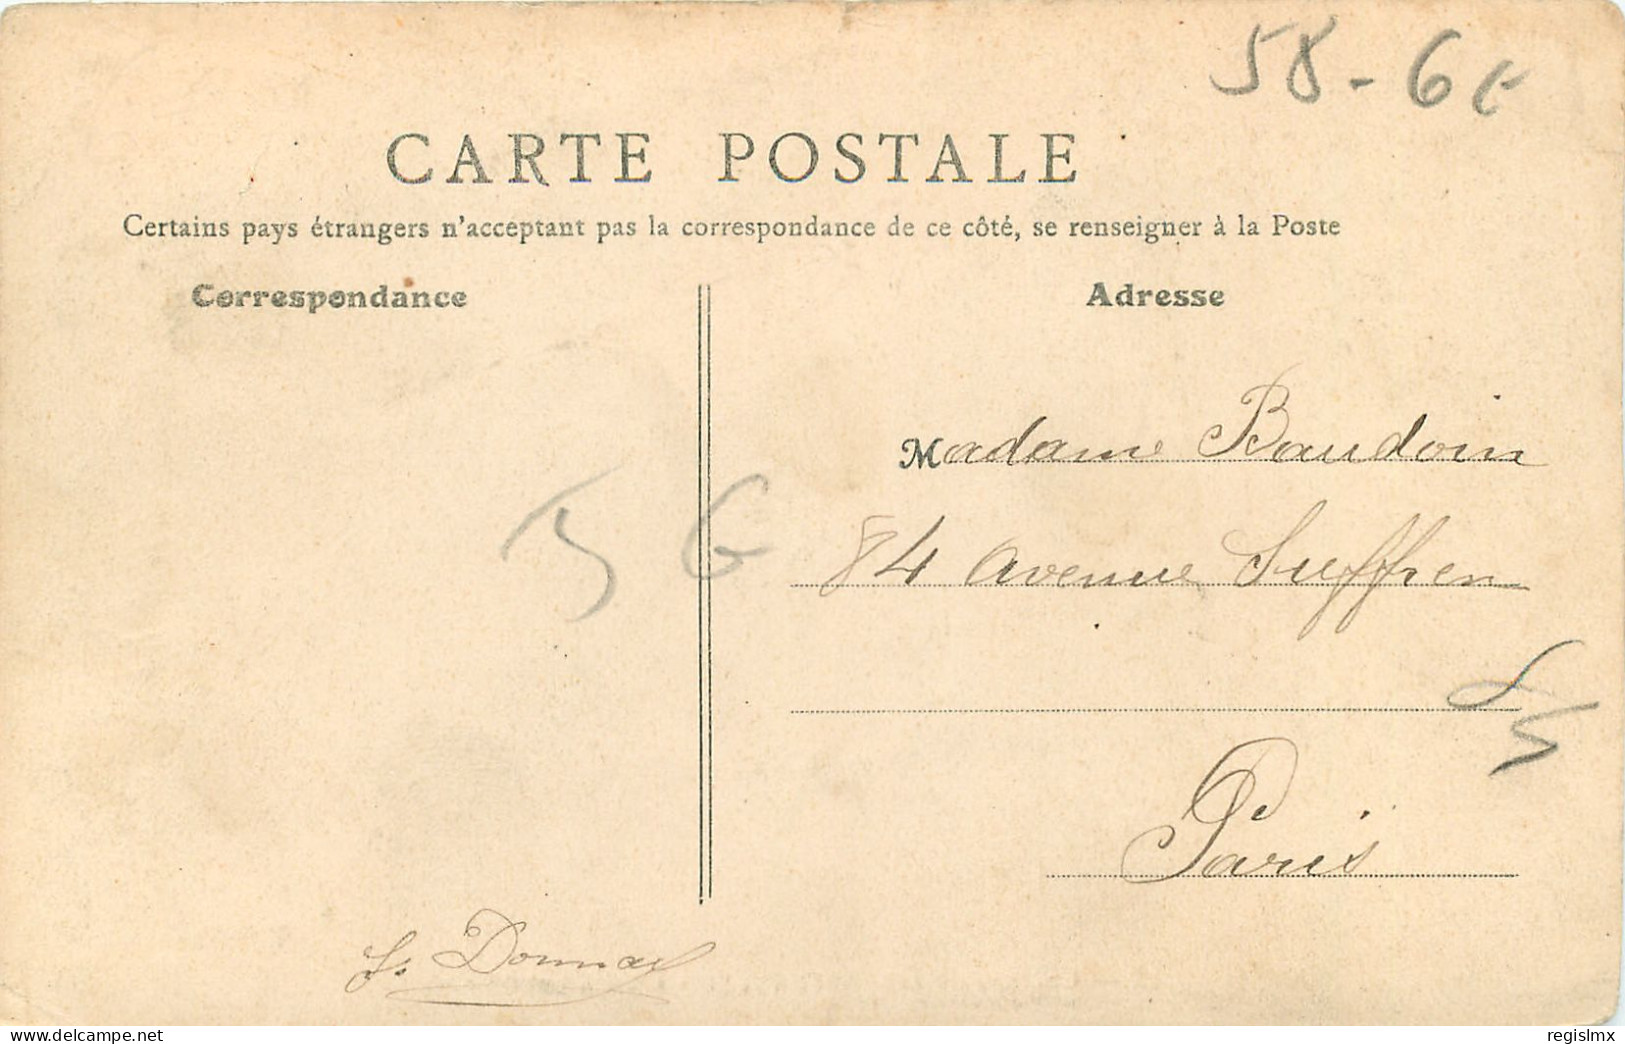 58 - 6€
CARTE POSTALE
Certains pays étrangers n'acceptant pas la correspondance de ce côté, se renseigner à la Poste
Correspondance
Adresse
Madame Baudoin
84 avenue Suffren
Paris
www.delcampe.net
regislmx